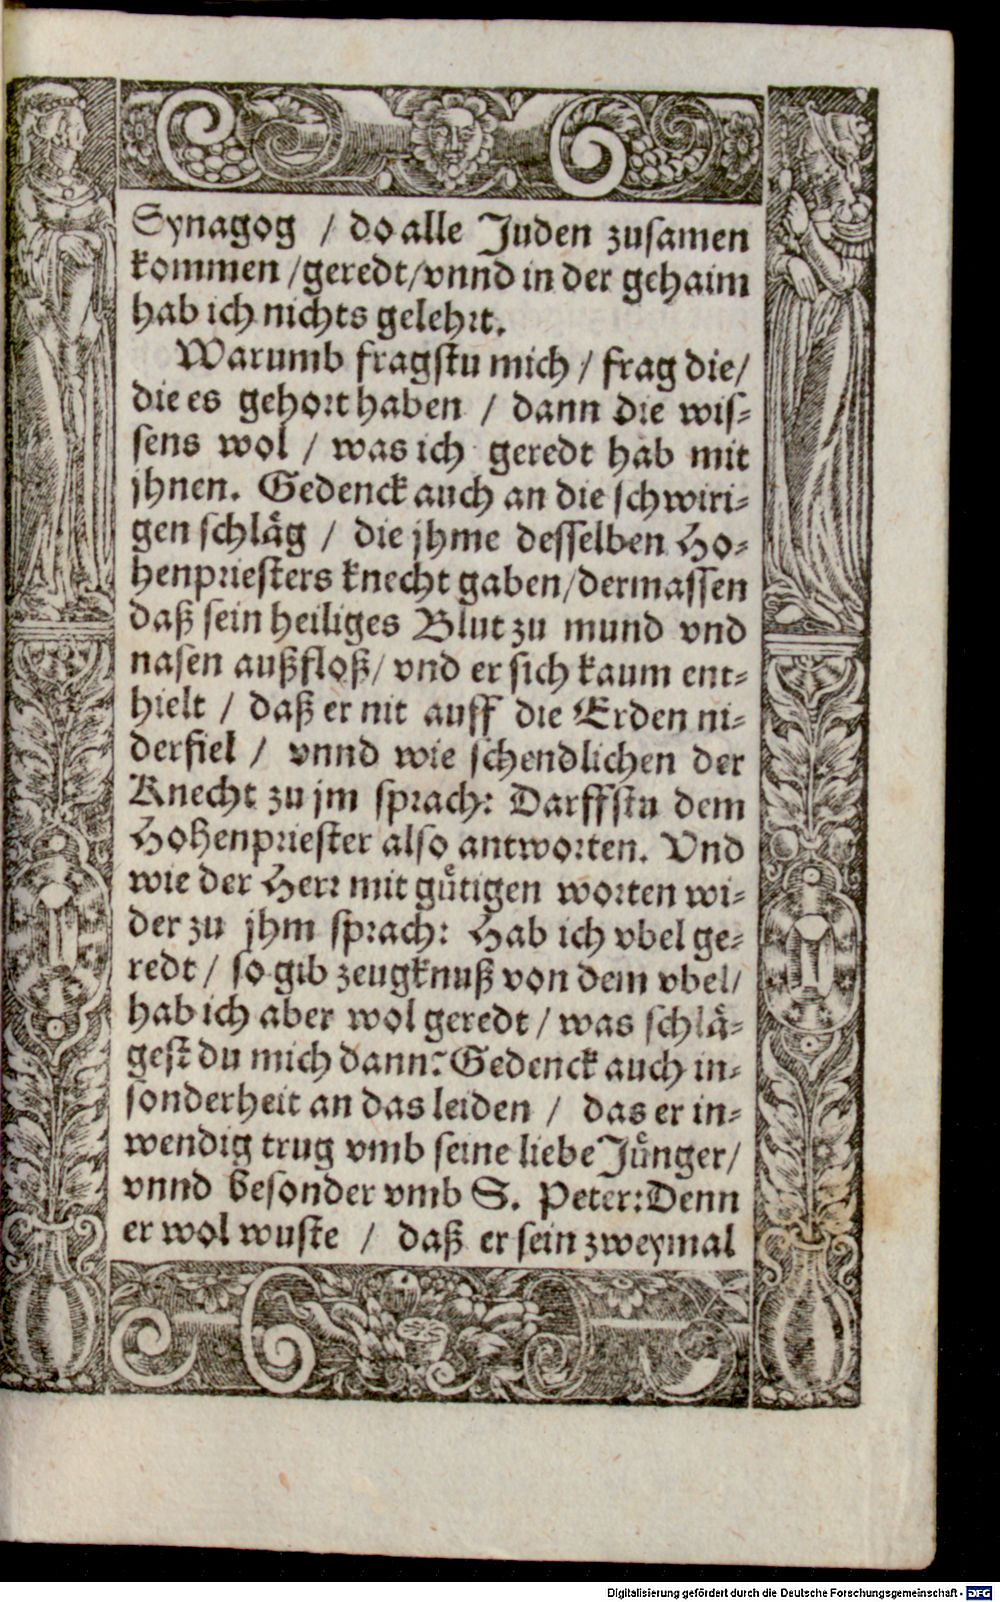 Synagog / do alle Juden zusamen
kommen /geredt/vnnd in der gehaim
hab ich nichts gelehrt.
Warumb fragstu mich / frag die/
die es gehort haben / dann die wis-
sens wol / was ich geredt hab mit
jhnen. Gedenck auch an die schwiri-
gen schläg / die jhme desselben Ho-
henpriesters knecht gaben/dermassen
daß sein heiliges Blut zu mund vnd
nasen außfloß/ vnd er sich kaum ent-
hielt / daß er nit auff die Erden ni-
derfiel / vnnd wie schendlichen der
Knecht zu jm sprach: Darffstu dem
Hohenpriester also antworten. Vnd
wie der Herr mit gütigen worten wi-
der zu jhm sprach: Hab ich vbel ge-
redt / so gib zeugknuß von dem vbel/
hab ich aber wol geredt / was schlä-
gest du mich dann? Gedenck auch in-
sonderheit an das leiden / das er in-
wendig trug vmb seine liebe Jünger/
vnnd besonder vmb S. Peter: Denn
er wol wuste / daß er sein zweymal
Digitalisierung gefördert durch die Deutsche Forschungsgemeinschaft - DFG